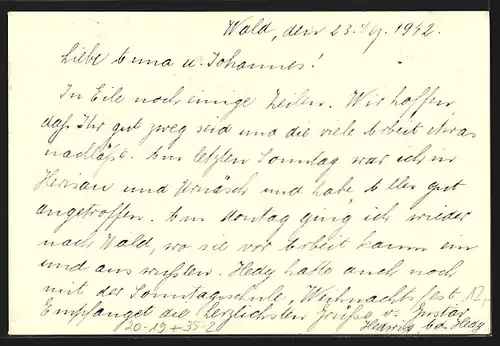 Wald, den 23. Dez. 1942.
Liebe Emma u. Johannes!
In Eile noch einige Zeilen. Wir hoffen,
daß Ihr gut zweg seid und die viele Arbeit etwas
nachläßt. Am letzten Sonntag war ich in
Herisau und Urnäsch und habe Alles gut
angetroffen. Am Montag ging ich wieder
nach Wald, wo sie vor Arbeit kaum ein
und aus wußten. Hedy hatte auch noch
mit der Sonntagsschule, Weihnachtsfest.
Empfanget die herzlichsten Grüße v. Gustav
Hedwig Hedy
20-19+35-2
12,-